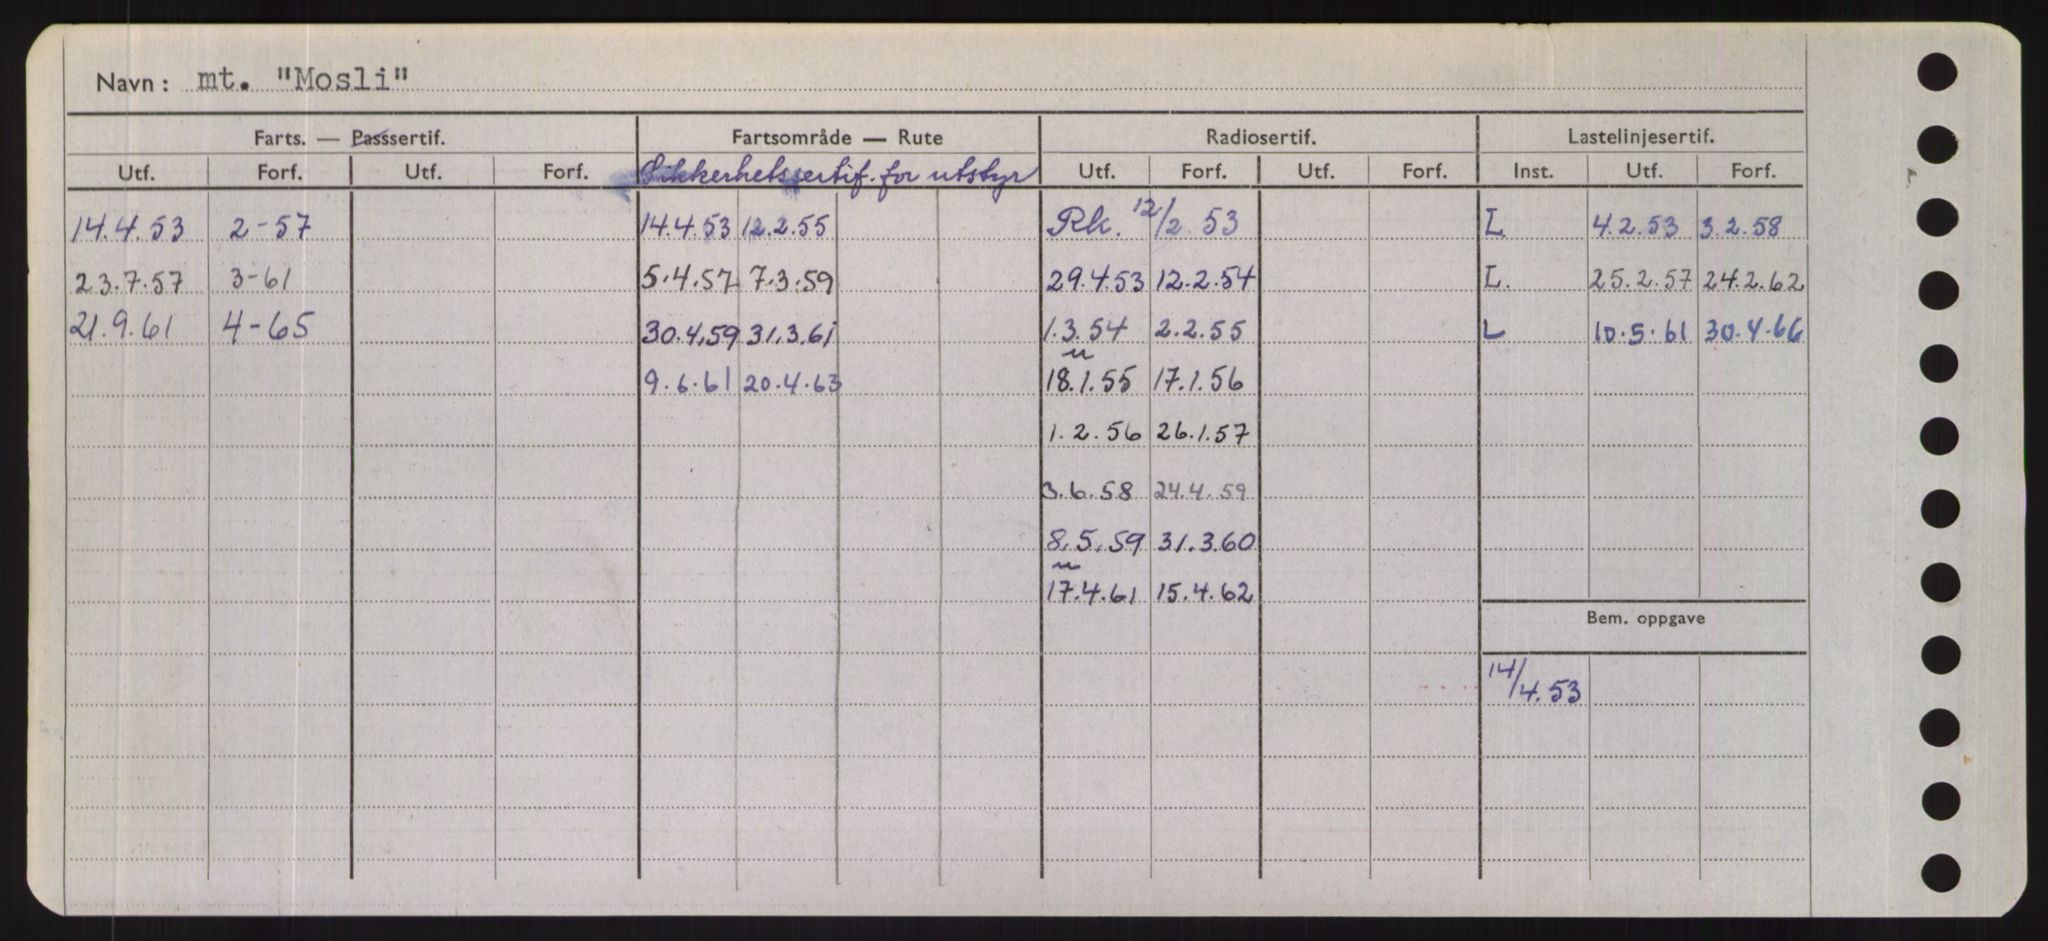 Navn: mt. "Mosli"
Farts. — Passsertif. Fartsområde — Rute Radiosertif. Lastelinjesertif.
Utf. Forf. Utf. Forf. Sikkerhetssertif. for utstyr Utf. Forf. Utf. Forf. Inst. Utf. Forf.
14.4.53 2-57 14.4.53 12.2.55 Rk. 12/2.53 L. 4.2.53 3.2.58
23.7.57 3-61 5.4.57 7.3.59 29.4.53 12.2.54 L. 25.2.57 24.2.62
21.9.61 4-65 30.4.59 31.3.61 1.3.54 2.2.55 L 10.5.61 30.4.66
9.6.61 20.4.63 18.1.55 17.1.56
1.2.56 26.1.57
3.6.58 24.4.59
8.5.59 31.3.60
17.4.61 15.4.62
Bem. oppgave
14/4.53